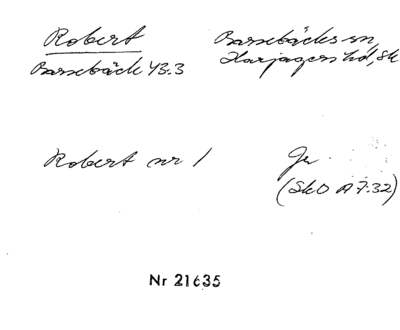 Robert
Barsebäcks sn,
Harjagers hd, Sk
Barsebäck 43:3
Robert nr 1
Ju
(SkO A 7:32)
Nr 21635